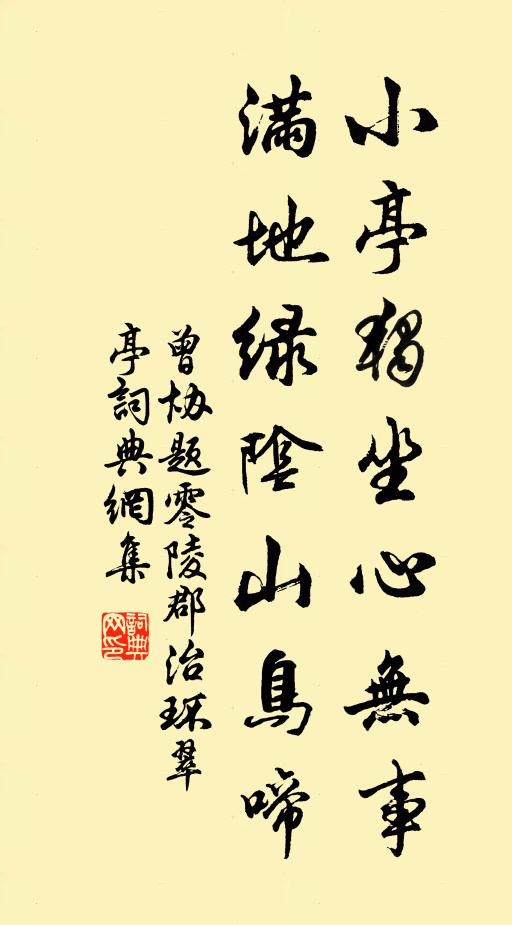 小亭獨坐心無事
滿地緑陰山鳥啼
曾協題零陵郡治環翠
亭詞典網集
詞典
网印